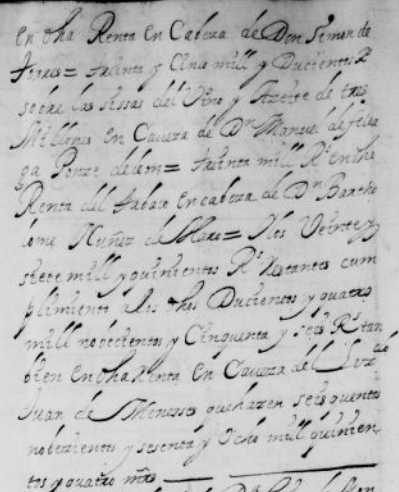 en dha Renta en Cabeza de Don Simon de
treinta y cinco mill y Ducientos Rs
sobre las sissas del Vino y Azeite de tres
Millones en Caveza de Dn Manuel de
ga Ponze de leon = treinta mill Rs en dha
Renta del tabaco en cabeza de Dn Bartho
lome Nuñez de = Y los Veinte y
siete mill y quinientos Rs Restantes cum
plimiento a los dhos Ducientos y quatro
mill nobecientos y Cinquenta y seis Rs tan
bien en dha Renta en Caveza del Lizdo
Juan de Menesses que hazen seis quentos
nobezientos y sesenta y Ocho mill quinien
tos y quatro mrs